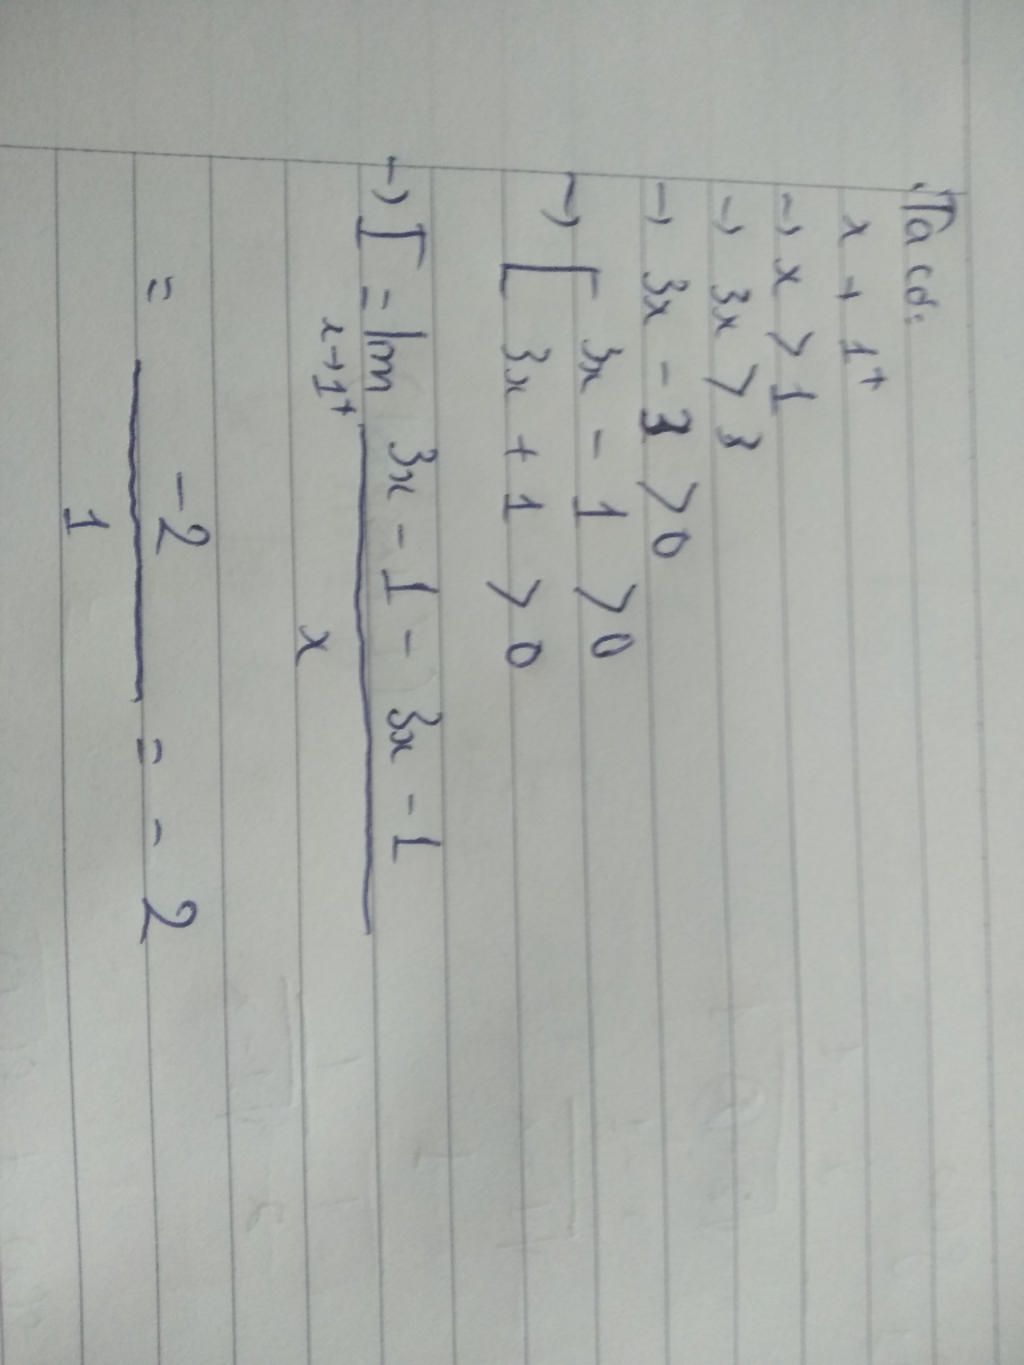 Ta có:
x → 1⁺
→ x > 1
→ 3x > 3
→ 3x - 3 > 0
→ [ 3x - 1 > 0
3x + 1 > 0
→ I = lim x→1⁺ (3x - 1 - 3x - 1) / x
= -2 / 1 = -2